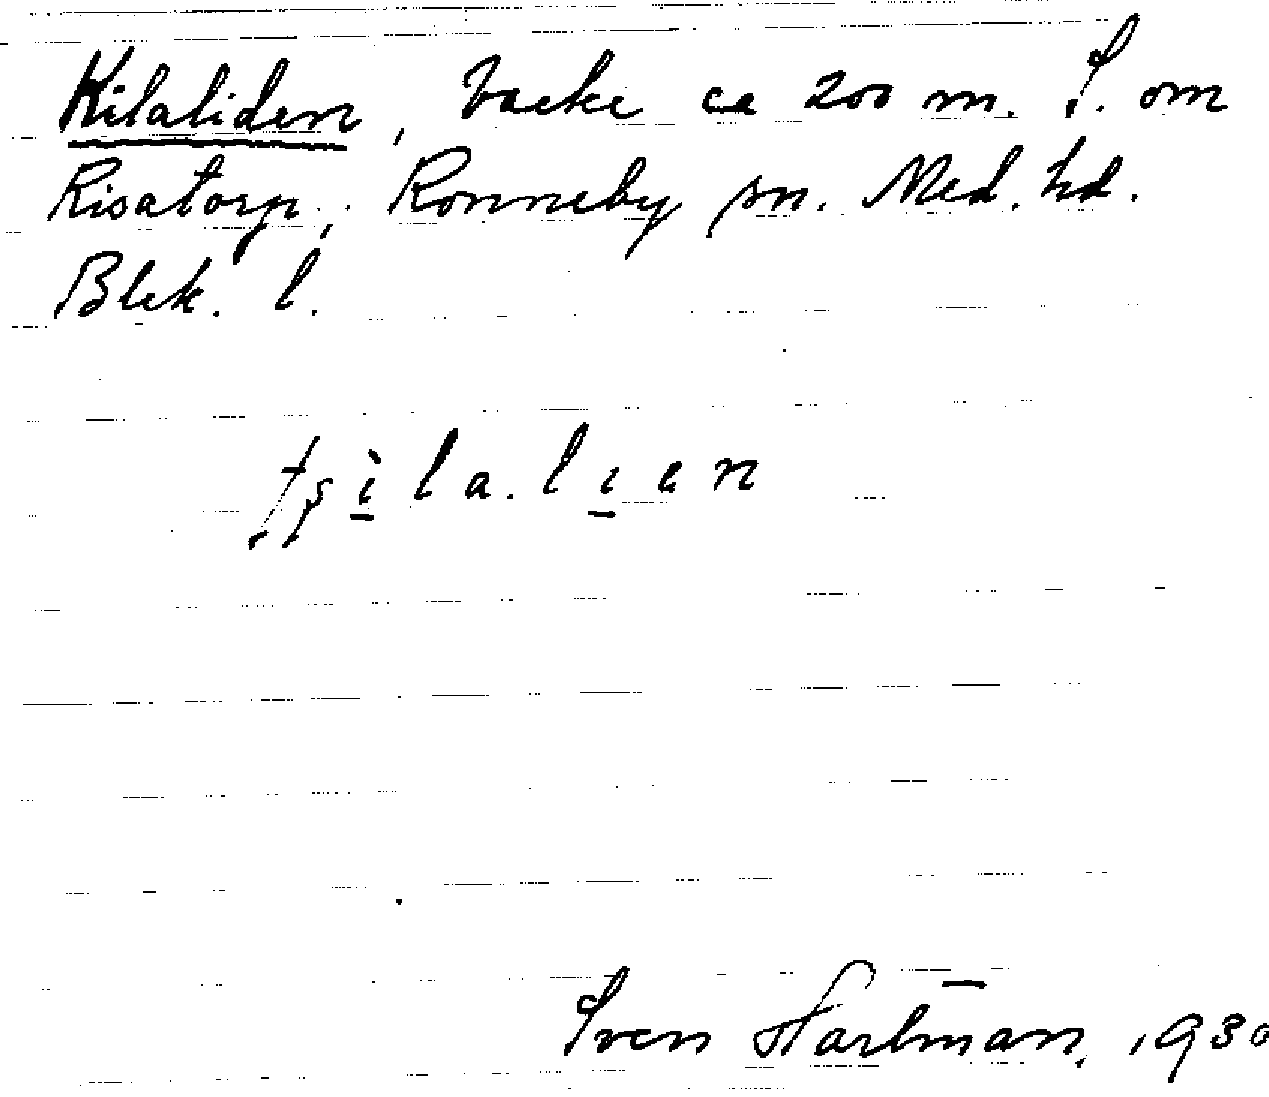 Kilaliden, backe ca 200 m. S. om
Risatorp, Ronneby sn. Med. hd.
Blek. l.
Sven Hartman, 1930